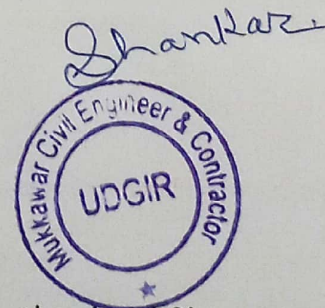 Shankar.
Mukkawar Civil Engineer & Contractor
UDGIR